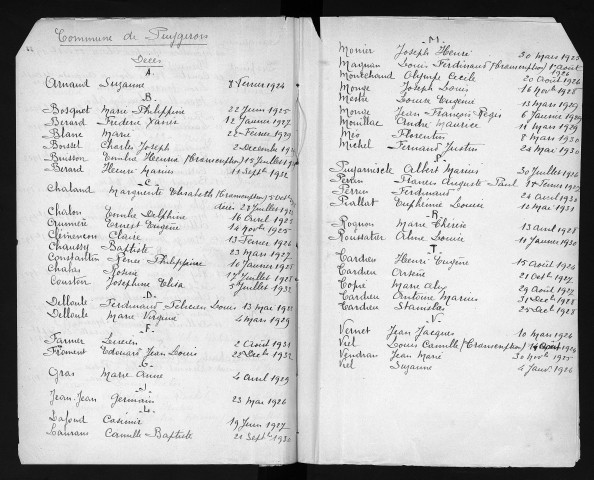 Commune de Puygiron
Décès
- A -
Arnaud Suzanne 8 Février 1924
- B -
Bosquet Marie Philippine 22 Juin 1925
Berard Frédéric Xavier 12 Janvier 1927
Blanc Marie 22 Février 1929
Boisset Charles Joseph 2 Décembre
Buisson Emilie Henriette (transcription) 12 Juillet
Berard Henri Marius 11 Septbre 1932
- C -
Chaland Marguerite Elisabeth (transcription) 5 Octbre
décès 28 Juillet
Chirlon Emilie Delphine 16 Avril 1925
Ernest Eugène 14 Novbre 1925
Claire 13 Février 1926
Chaussy Baptiste 23 Mars 1927
Constantin Philippine 10 Janvier 1928
Chalas Rosine 17 Juillet 1928
Couston Joséphine Elisa 5 Juillet 1932
- D -
Delloule Ferdinand Félicien Louis 13 Mai
Delloule Marie Virginie 4 Mars 1929
- F -
Farnier Lucien 2 Août 1931
Froment Edouard Jean Louis 22 Décbre 1932
- G -
Gras Marie Anne 4 Avril 1929
- J -
Jean-Jean Germain 23 Mai 1926
- L -
Lafond Casimir 19 Juin 1927
Laurans Camille Baptiste 21 Septbre 1930
- M -
Monier Joseph Henri 30 Mars 1925
Magnan Louis Ferdinand (transcription) 1er Août
1926
Montchaud Olympe Cécile 20 Août 1926
Monge Joseph Louis 16 Novbre 1928
Louise Eugénie 13 Mars 1929
Monge Jean François Régis 6 Janvier
Mouillac André Maurice 11 Mars 1929
Méo Florentin 8 Mars 1930
Michel Fernand Justin 24 Mai 1930
- P -
Albert Marius 30 Juillet
Perrin Francis Auguste Paul 18 Février 1927
Perrin Ferdinand 24 Avril 1930
Piallat Euphémie Louise 12 Mai 1931
- R -
Rognon Marie Thérèse 13 Avril 1928
Roussatier Aline Louise 11 Janvier 1930
- T -
Tardieu Henri Eugène 15 Août 1924
Tardieu Arsène 21 Octbre 1927
Marie 29 Août 1927
Tardieu Antoine Marius 31 Décbre 1928
Tardieu Stanislas 25 Décbre 1928
- V -
Vernet Jean Jacques 10 Mars 1926
Viel Louis Camille (transcription) 14 Août
Vendran Jean Marie 30 Novbre 1925
Viel Suzanne 4 Janv. 1926